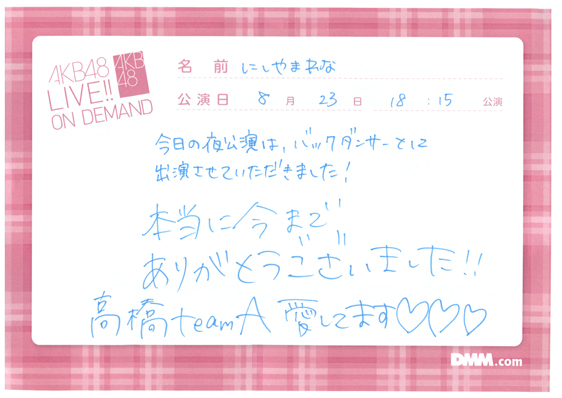 AKB48
LIVE!!
ON DEMAND
AKB
48
名前 にしやまれな
公演日 8月23日 18:15 公演
今日の夜公演は、バックダンサーとして
出演させていただきました!
本当に今まで
ありがとうございました!!
高橋teamA 愛してます♡♡♡
DMM.com